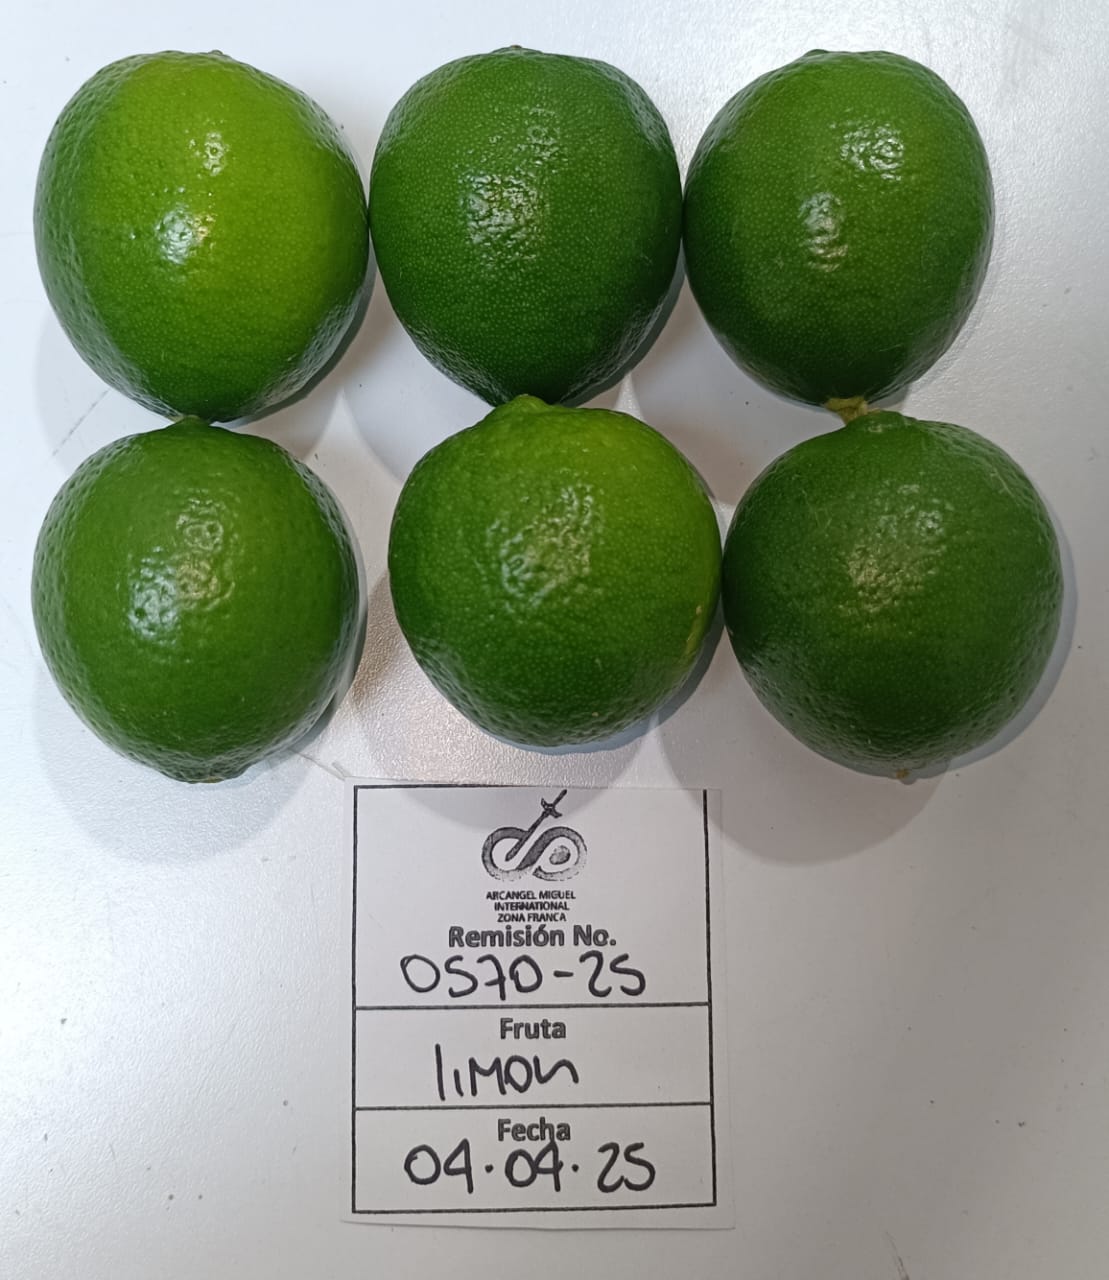 ARCANGEL MIGUEL
INTERNATIONAL
ZONA FRANCA
Remisión No.
0570-25
Fruta
limon
Fecha
04.04.25